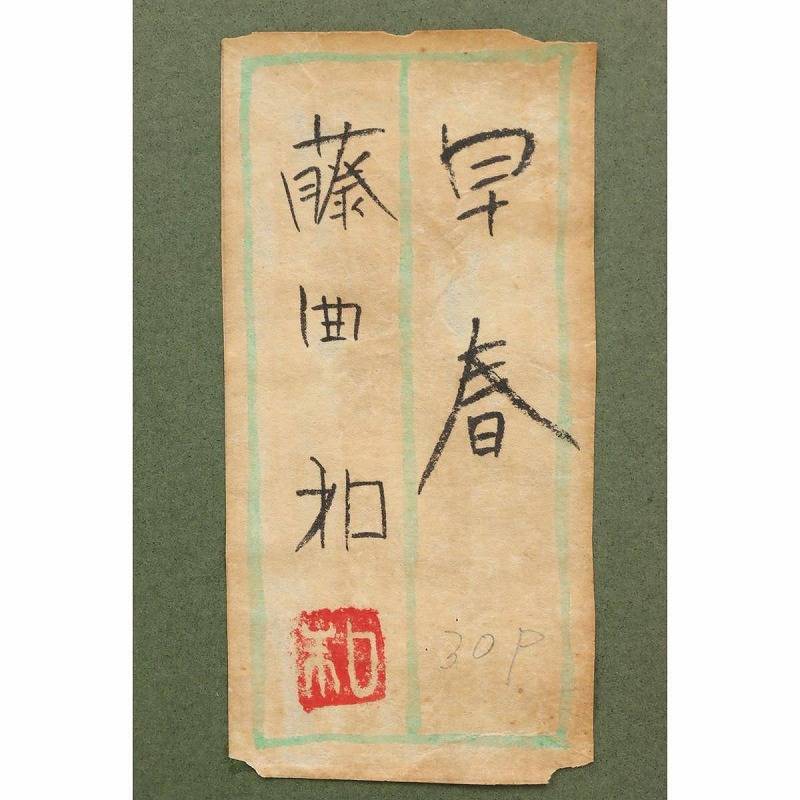 早春
30P
藤田和
和